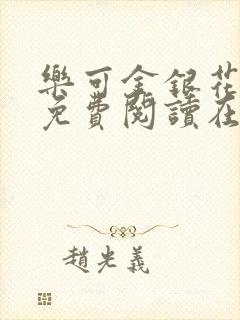 樂可金銀花
免費閱讀在
趙光義